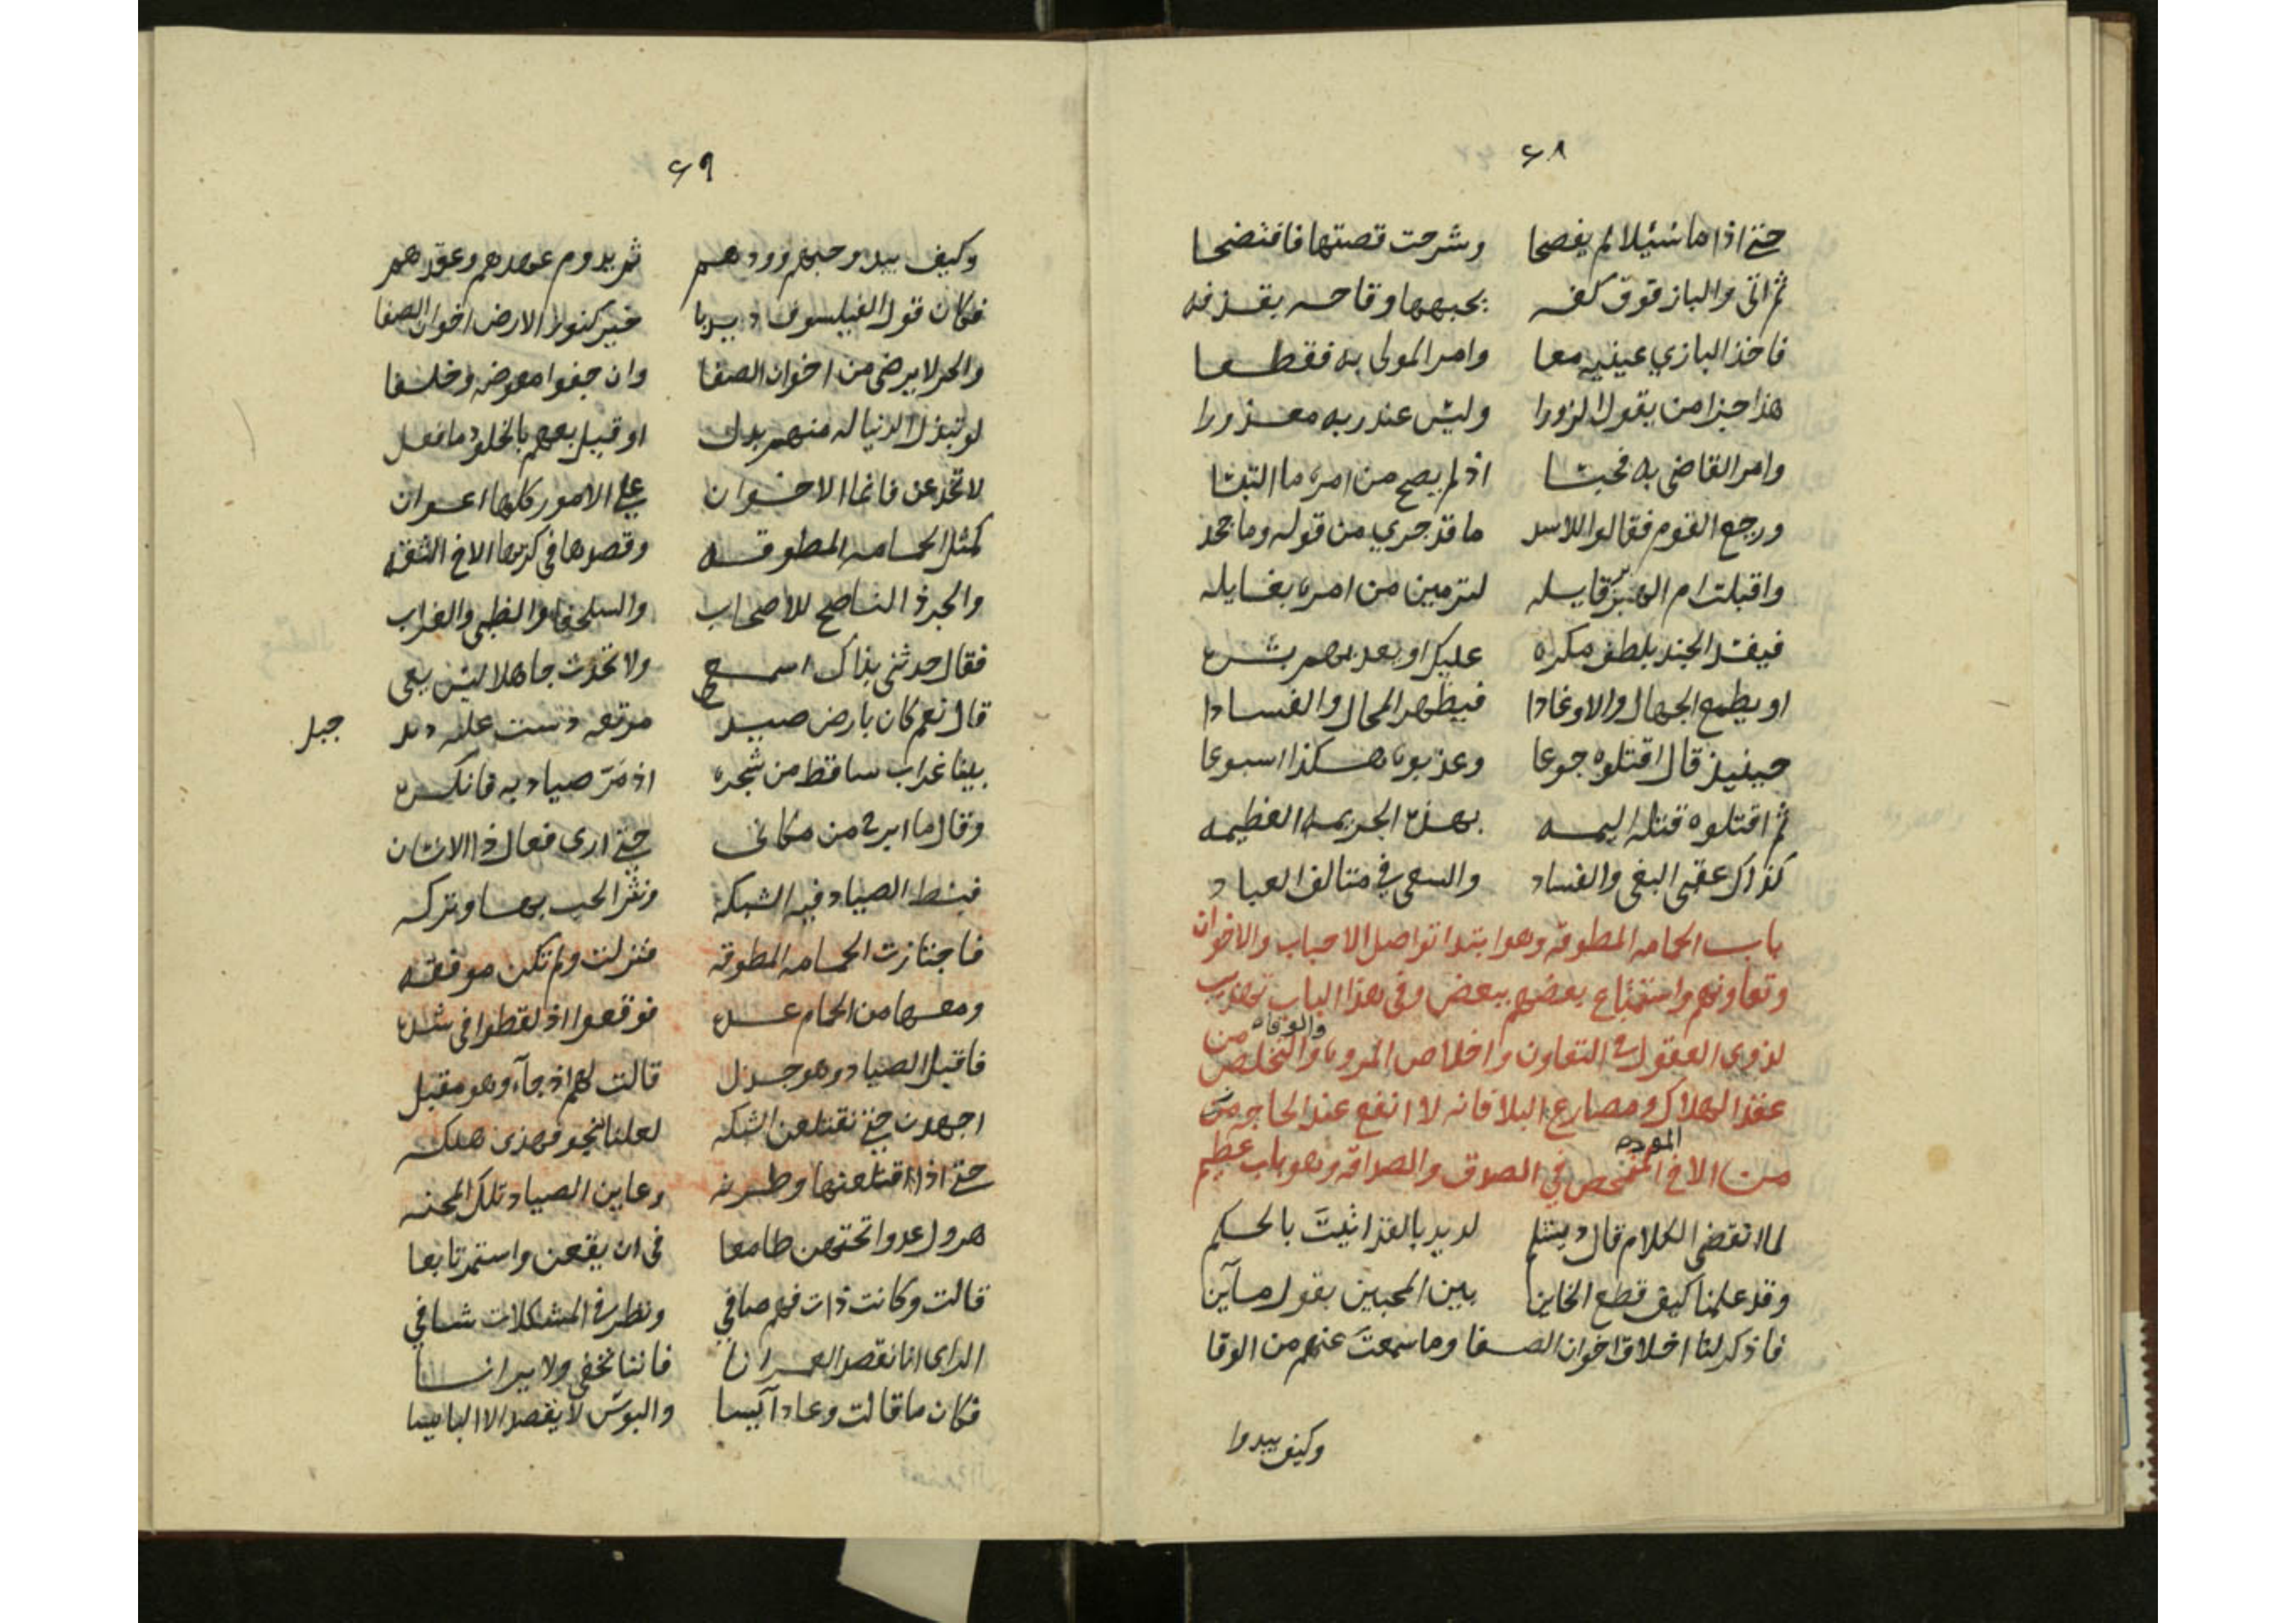 ٦٨
حتى اذا ما سئيلا لم يفصحا وشرحت قصتها فافتضحا
ثم اتى والباز فوق كفه بجبهها وقاحه بقذفه
فاخذ البازي عينيه معا وامر المولى به فقطعا
هذا جزا من يقول الزورا وليس عند ربه معذورا
وامر القاضي به فحبسا اذ لم يصح من امره ما التبسا
ورجع القوم فقالوا للاسد ما قد جرى من قوله وما جحد
واقبلت ام الهزبر قايله لترمين من امره بغايله
فيفسد الجند بلطف مكره عليك او يعديهم بشره
او يطمع الجهال والاوغادا فيظهر المحال والفسادا
حينيذ قال اقتلوه جوعا وعذبوه هكذا اسبوعا
ثم اقتلوه قتلة اليمه بهذه الجريمه العظيمه
كذاك عقبى البغي والفساد والسعي في متالف العباد
باب الحمامه المطوقه وهو ابتدا تواصل الاحباب والاخوان
وتعاونهم واستمتاع بعضهم ببعض وفي هذا الباب تهذيب
لذوي العقول في التعاون واخلاص المروه والوفاء والتخلص من
عقد الهلاك ومصارع البلا فانه لا انفع عند الحاجه من
من الاخ الممخض الموده في الصدق والصداقه وهو باب عظيم
لما انقضى الكلام قال دبشلم لديد بالقد اتيت بالحكم
وقد علمنا كيف قطع الخاين بين المحبين بقول ماين
فاذكر لنا اخلاق اخوان الصفا وما سمعت عنهم من الوفا
وكيف يبدوا
٦٩
وكيف يبدو حبهم وودهم ثم يدوم عهدهم وعقدهم
فكان قول الفيلسوف بيدبا خير كنوز الارض اخوان الصفا
والحر لا يرضى من اخوان الصفا وان جفوا معوضه وخلفا
لو تبذل الدنيا له منهم بدل او قيل بعهم بالخلود ما فعل
لا تخدعن فانما الاخوان على الامور كلها اعوان
كمثل الحمامه المطوقه وقصدها في كربها الاخ الثقه
والجرذ الناصح للاصحاب والسلحفا والظبي والغراب
فقال حدثني بذاك اسمع ولا تحدث جاهلا ليس يعي
قال نعم كان بارض صيد مرتعه دست عليه ديد جبل
بينا غراب ساقط من شجره اذ مر صياد به فانكره
وقال ما ابرح من مكاني حتى ارى فعال ذا الانسان
فبسط الصياد فيه الشبكه ونثر الحب بها وتركه
فاجتازت الحمامه المطوقه فنزلت ولم تكن موفقه
ومعها من الحمام عده فوقعوا اذ لقطوا في شده
فاقبل الصياد وهو جذل قالت لهم اذ جاء وهو مقبل
اجهدن حتى نقتلعن الشبكه لعلنا ننجو فهذي هلكه
حتى اذا اقتلعنها وطرنه وعاين الصياد تلك المحنه
هرول عدوا تحتهن طامعا في ان يقعن واستمر تابعا
قالت وكانت ذات فهم صافي ونظر في المشكلات شافي
الراي انا نقصد العمرانا فاننا نخفى ولا يرانا
فكان ما قالت وعاد آيسا والبوس لا يقصد الا البايسا